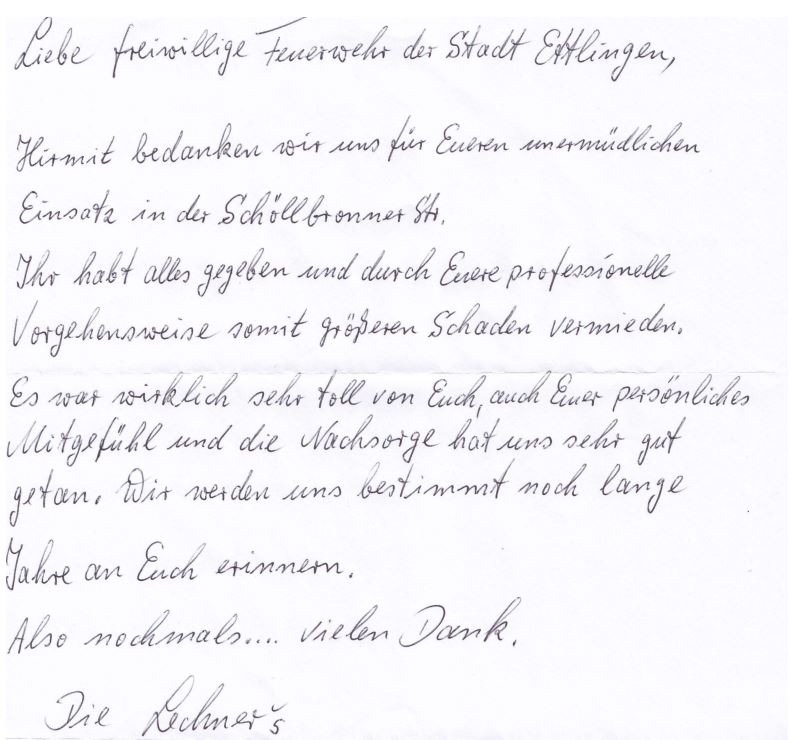 Liebe freiwillige Feuerwehr der Stadt Ettlingen,
Hirmit bedanken wir uns für Eueren unermüdlichen
Einsatz in der Schöllbronner Str.
Ihr habt alles gegeben und durch Euere professionelle
Vorgehensweise somit größeren Schaden vermieden.
Es war wirklich sehr toll von Euch, auch Euer persönliches
Mitgefühl und die Nachsorge hat uns sehr gut
getan. Wir werden uns bestimmt noch lange
Jahre an Euch erinnern.
Also nochmals.... vielen Dank.
Die Lechner's